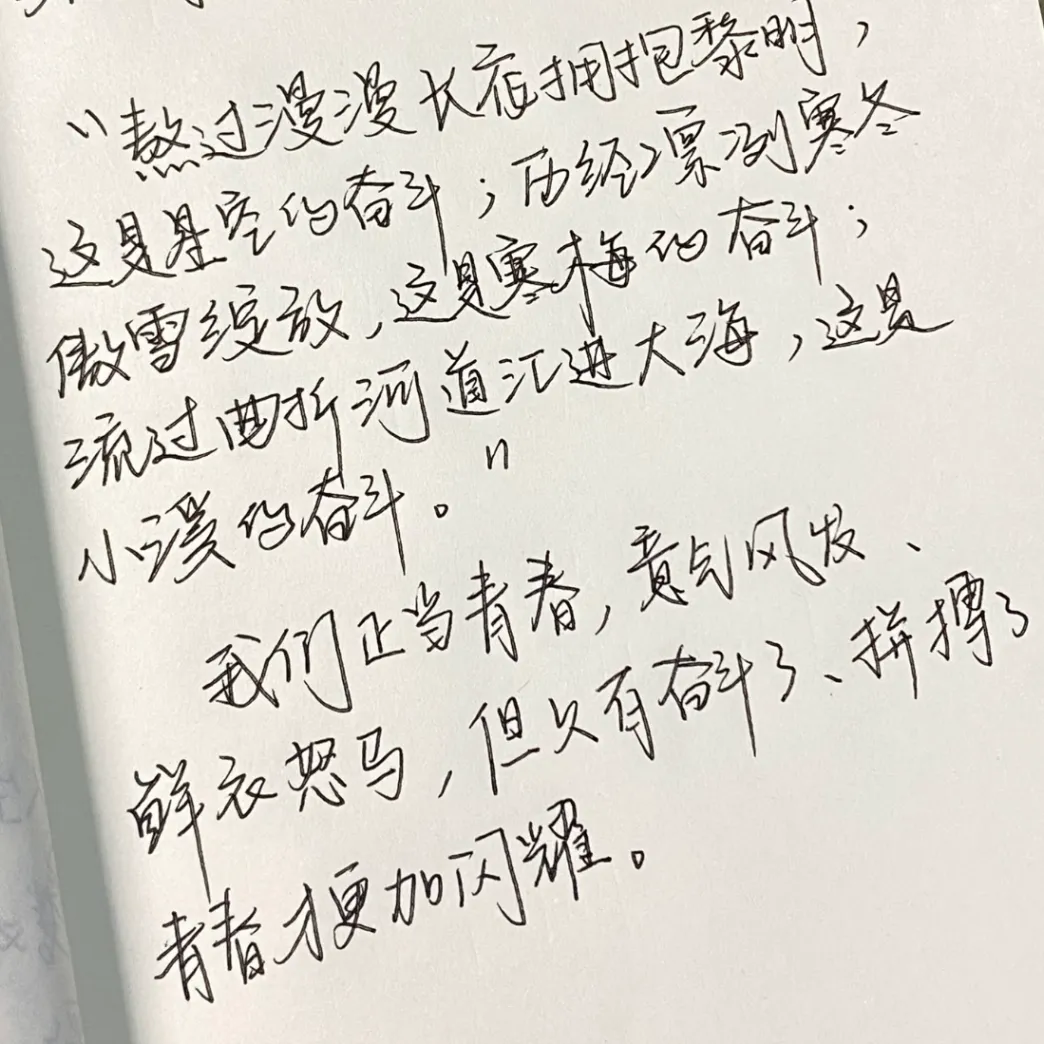 “熬过漫漫长夜拥抱黎明，
这是星空的奋斗；历经凛冽寒冬
傲雪绽放，这是寒梅的奋斗；
流过曲折河道汇进大海，这是
小溪的奋斗。”
我们正当青春，意气风发、
鲜衣怒马，但只有奋斗了、拼搏了
青春才更加闪耀。